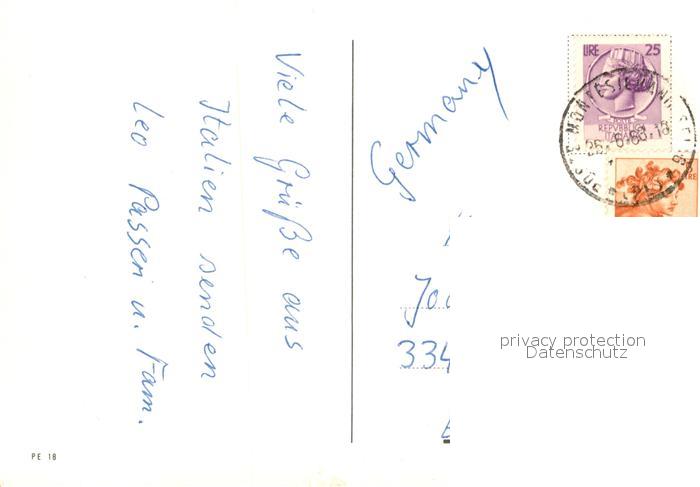 Viele Grüße aus
Italien senden
Leo Passeri u. Fam.
PE 18
Germany
334
privacy protection
Datenschutz
LIRE 25
REPVBBLICA
ITALIANA
26.6.68.18